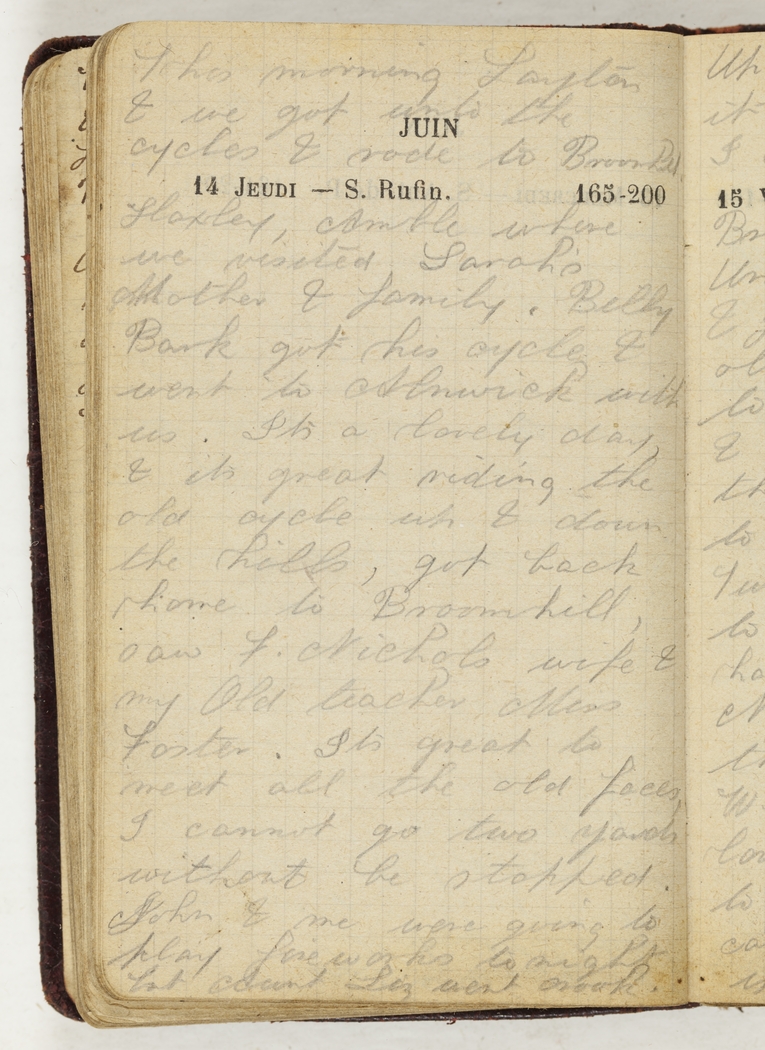 This morning Layton
& we got unto the
JUIN
cycles & rode to Broomhill
14 JEUDI — S. Rufin. 165-200
Haxley, Amble where
we visited Sarah's
Mother & family. Billy
Bark got his cycle &
went to Alnwick with
us. Its a lovely day,
& its great riding the
old cycle up & down
the hills, got back
home to Broomhill,
saw F. Nichols wife &
my Old teacher Miss
Foster. Its great to
meet all the old faces,
I cannot go two yards
without be stopped.
John & me were going to
play fireworks tonight
but Aunt Liz went crook.
15